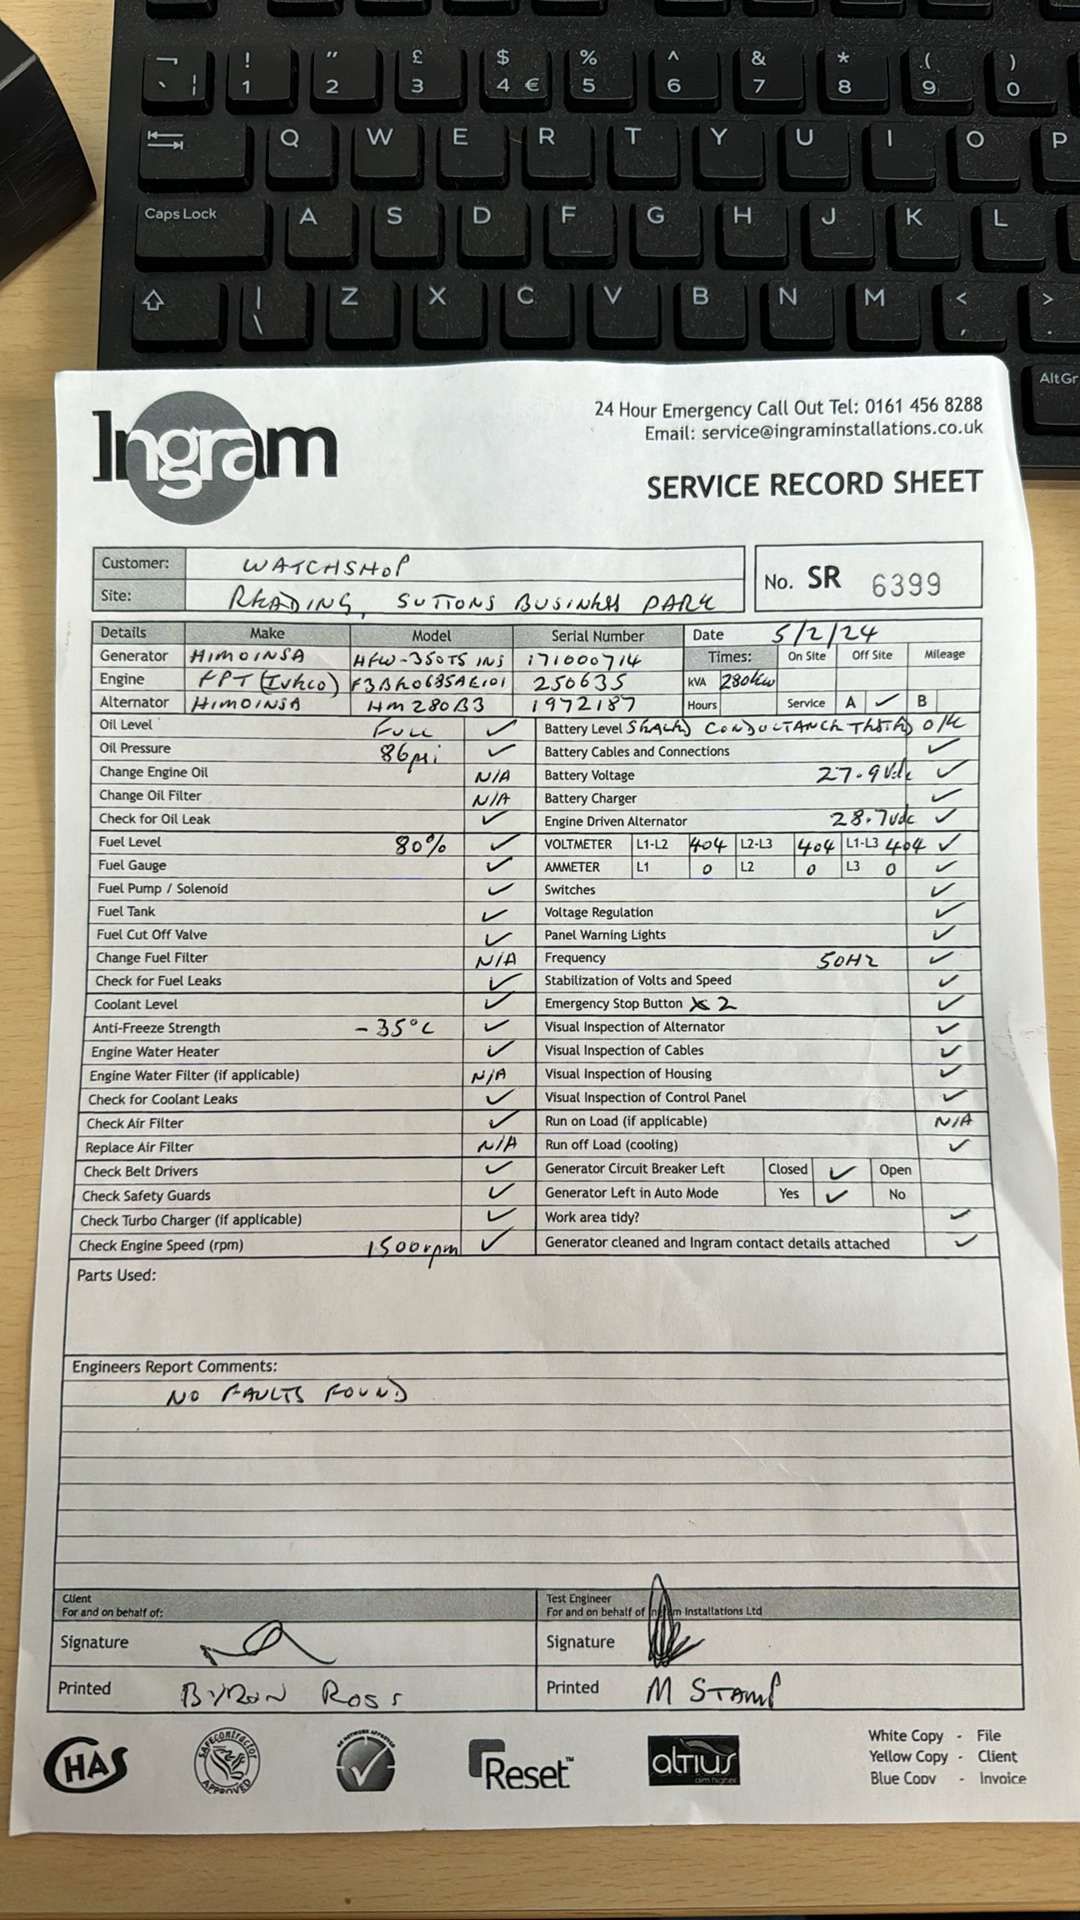 ¬ ! " £ $ % ^ & * ( )
` ¦ 1 2 3 4 € 5 6 7 8 9 0
Q W E R T Y U I O P
Caps Lock A S D F G H J K L
| \ Z X C V B N M < , > .
AltGr
Ingram
24 Hour Emergency Call Out Tel: 0161 456 8288
Email: service@ingraminstallations.co.uk
SERVICE RECORD SHEET
Customer: WATCHSHOP
Site: READING, SUTTONS BUSINESS PARK
No. SR 6399
Details Make Model Serial Number Date 5/2/24
Generator HIMOINSA HFW-350T5 INS 171000714 Times: On Site Off Site Mileage
Engine FPT (IVECO) 250635 kVA 280kw
Alternator HIMOINSA HM280B3 1972187 Hours Service A ✓ B
Oil Level FULL ✓ Battery Level SEALED CONDUCTANCE TESTED O/K
Oil Pressure 86psi ✓ Battery Cables and Connections ✓
Change Engine Oil N/A Battery Voltage 27.9Vdc ✓
Change Oil Filter N/A Battery Charger ✓
Check for Oil Leak ✓ Engine Driven Alternator 28.7vdc ✓
Fuel Level 80% ✓ VOLTMETER L1-L2 404 L2-L3 404 L1-L3 404 ✓
Fuel Gauge ✓ AMMETER L1 0 L2 0 L3 0 ✓
Fuel Pump / Solenoid ✓ Switches ✓
Fuel Tank ✓ Voltage Regulation ✓
Fuel Cut Off Valve ✓ Panel Warning Lights ✓
Change Fuel Filter N/A Frequency 50Hz ✓
Check for Fuel Leaks ✓ Stabilization of Volts and Speed ✓
Coolant Level ✓ Emergency Stop Button x2 ✓
Anti-Freeze Strength -35°C ✓ Visual Inspection of Alternator ✓
Engine Water Heater ✓ Visual Inspection of Cables ✓
Engine Water Filter (if applicable) N/A Visual Inspection of Housing ✓
Check for Coolant Leaks ✓ Visual Inspection of Control Panel ✓
Check Air Filter ✓ Run on Load (if applicable) N/A
Replace Air Filter N/A Run off Load (cooling) ✓
Check Belt Drivers ✓ Generator Circuit Breaker Left Closed ✓ Open
Check Safety Guards ✓ Generator Left in Auto Mode Yes ✓ No
Check Turbo Charger (if applicable) ✓ Work area tidy? ✓
Check Engine Speed (rpm) 1500rpm ✓ Generator cleaned and Ingram contact details attached ✓
Parts Used:
Engineers Report Comments:
NO FAULTS FOUND
Client Test Engineer
For and on behalf of: For and on behalf of Ingram Installations Ltd
Signature Signature
Printed BYRON ROSS Printed M STAMP
CHAS SAFEcontractor APPROVED Reset™ altius aim higher
White Copy - File
Yellow Copy - Client
Blue Copy - Invoice